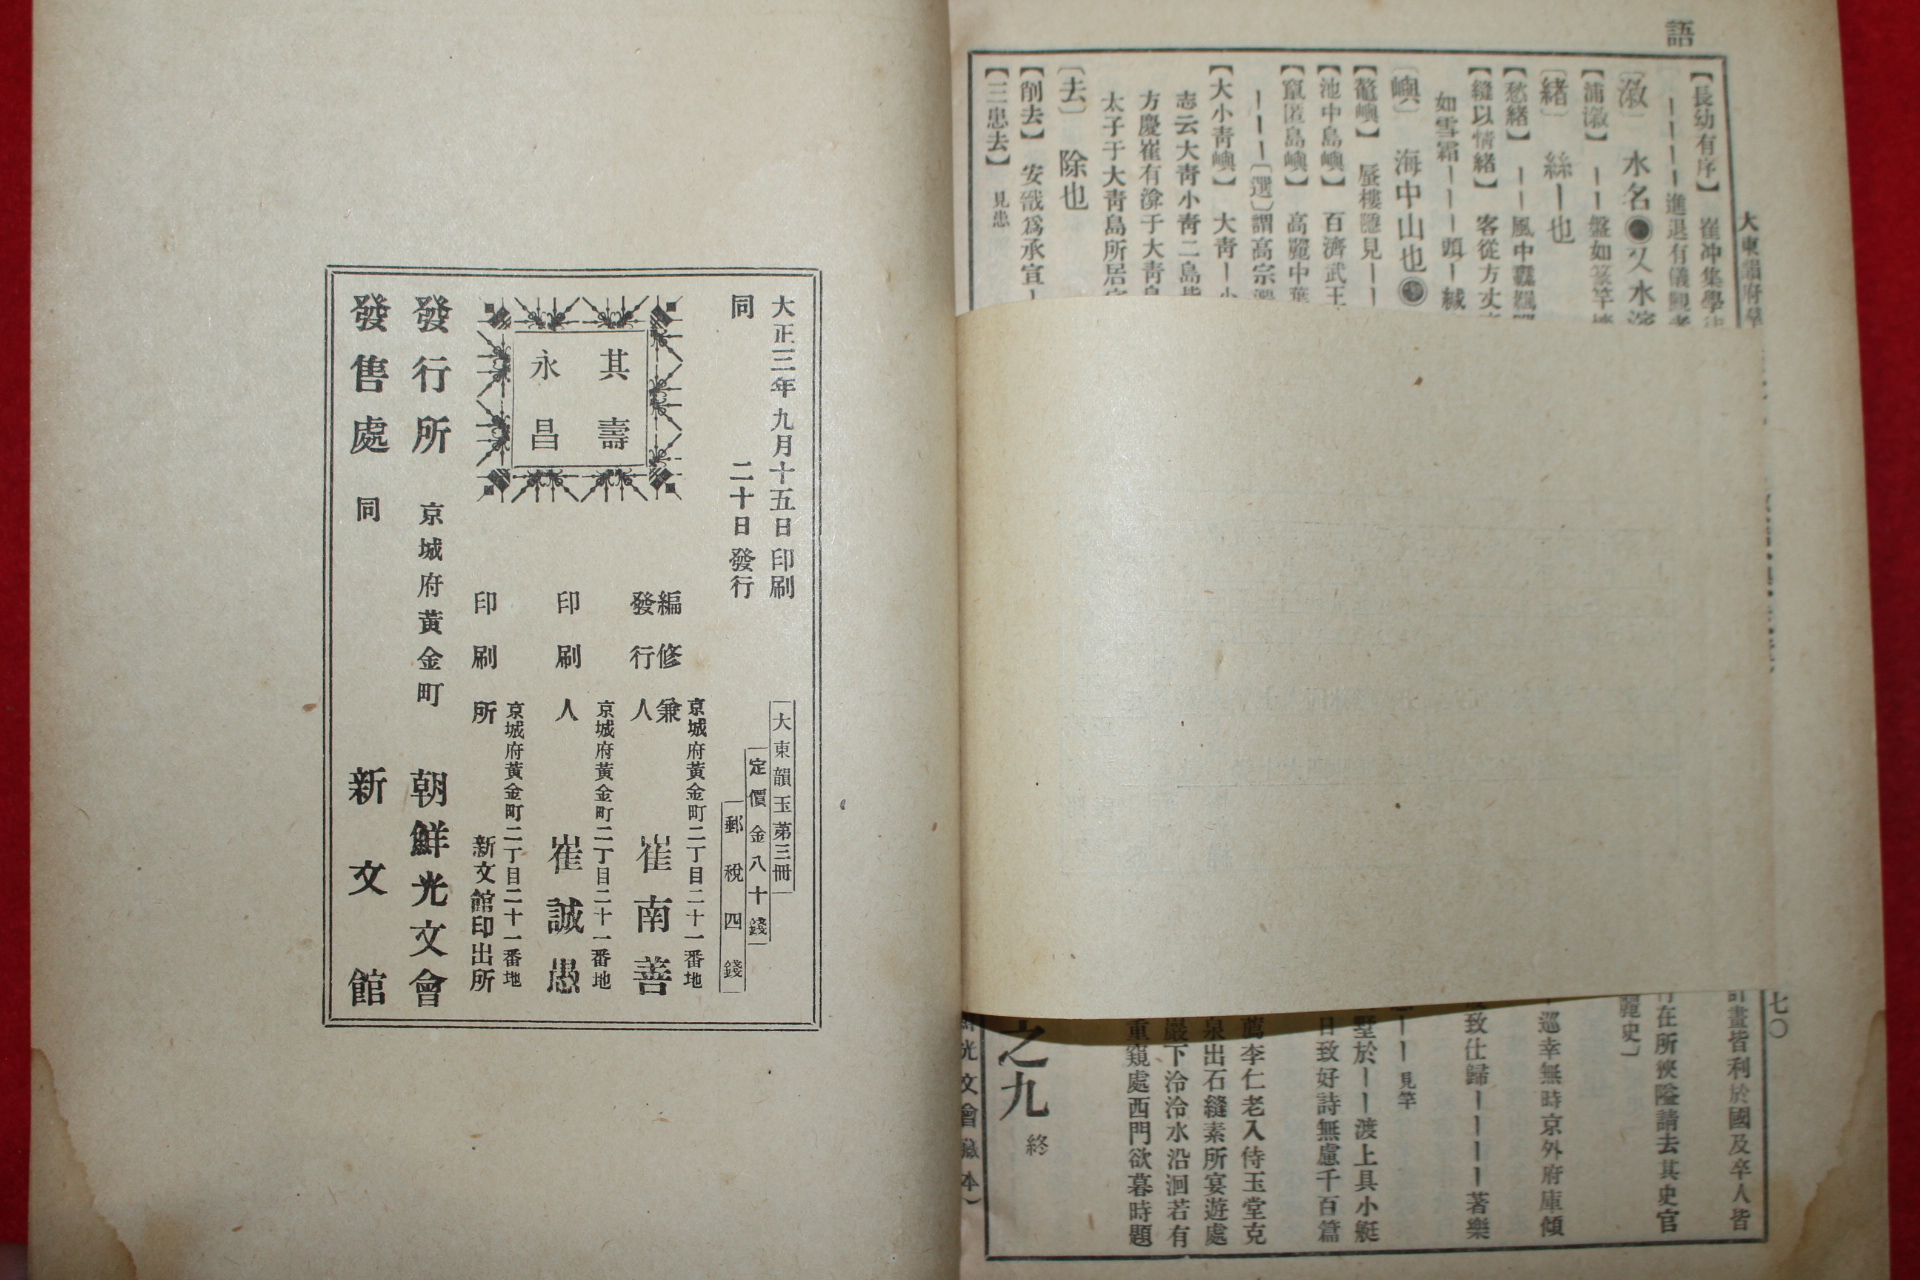 語
大東韻府群
【長幼有序】 崔冲集學徒
ーーーー進退有儀觀者
〔漵〕 水名●又水浦
【浦漵】 ーー盤如篆竿
〔緖〕 絲ー也
【愁緖】 ーー風中
【縫以情緖】 客從方丈
如雪霜ーーー頭ー緘
〔嶼〕 海中山也●
【鼇嶼】 蜃樓隱見ーー
【池中島嶼】 百濟武王
【竄匿島嶼】 高麗中葉
ーーー〔選〕謂高宗
【大小靑嶼】 大靑ー小
志云大靑小靑二島皆
方慶崔有渰于大靑島
太子于大靑島所居
〔去〕 除也
【削去】 安戩爲承宣ー
【三患去】 見患
七〇
計畫皆利於國及卒人皆
行在所狹隘請去其史官
麗史〕
巡幸無時京外府庫傾
致仕歸ーーーー著樂
ーー 見竿
墅於ーー渡上具小艇
日致好詩無慮千百篇
薦李仁老入侍玉堂克
泉出石縫素所宴遊處
巖下泠泠水沿洄若有
重窺處西門欲暮時題
之九 終
光文會藏本）
大正三年九月十五日印刷
同 二十日發行
其壽
永昌
大東韻玉第三冊
定價金八十錢
郵稅四錢
京城府黃金町二丁目二十一番地
編修兼
發行人 崔南善
京城府黃金町二丁目二十一番地
印刷人 崔誠愚
京城府黃金町二丁目二十一番地
印刷所 新文館印出所
發行所 京城府黃金町 朝鮮光文會
發售處 同 新文館